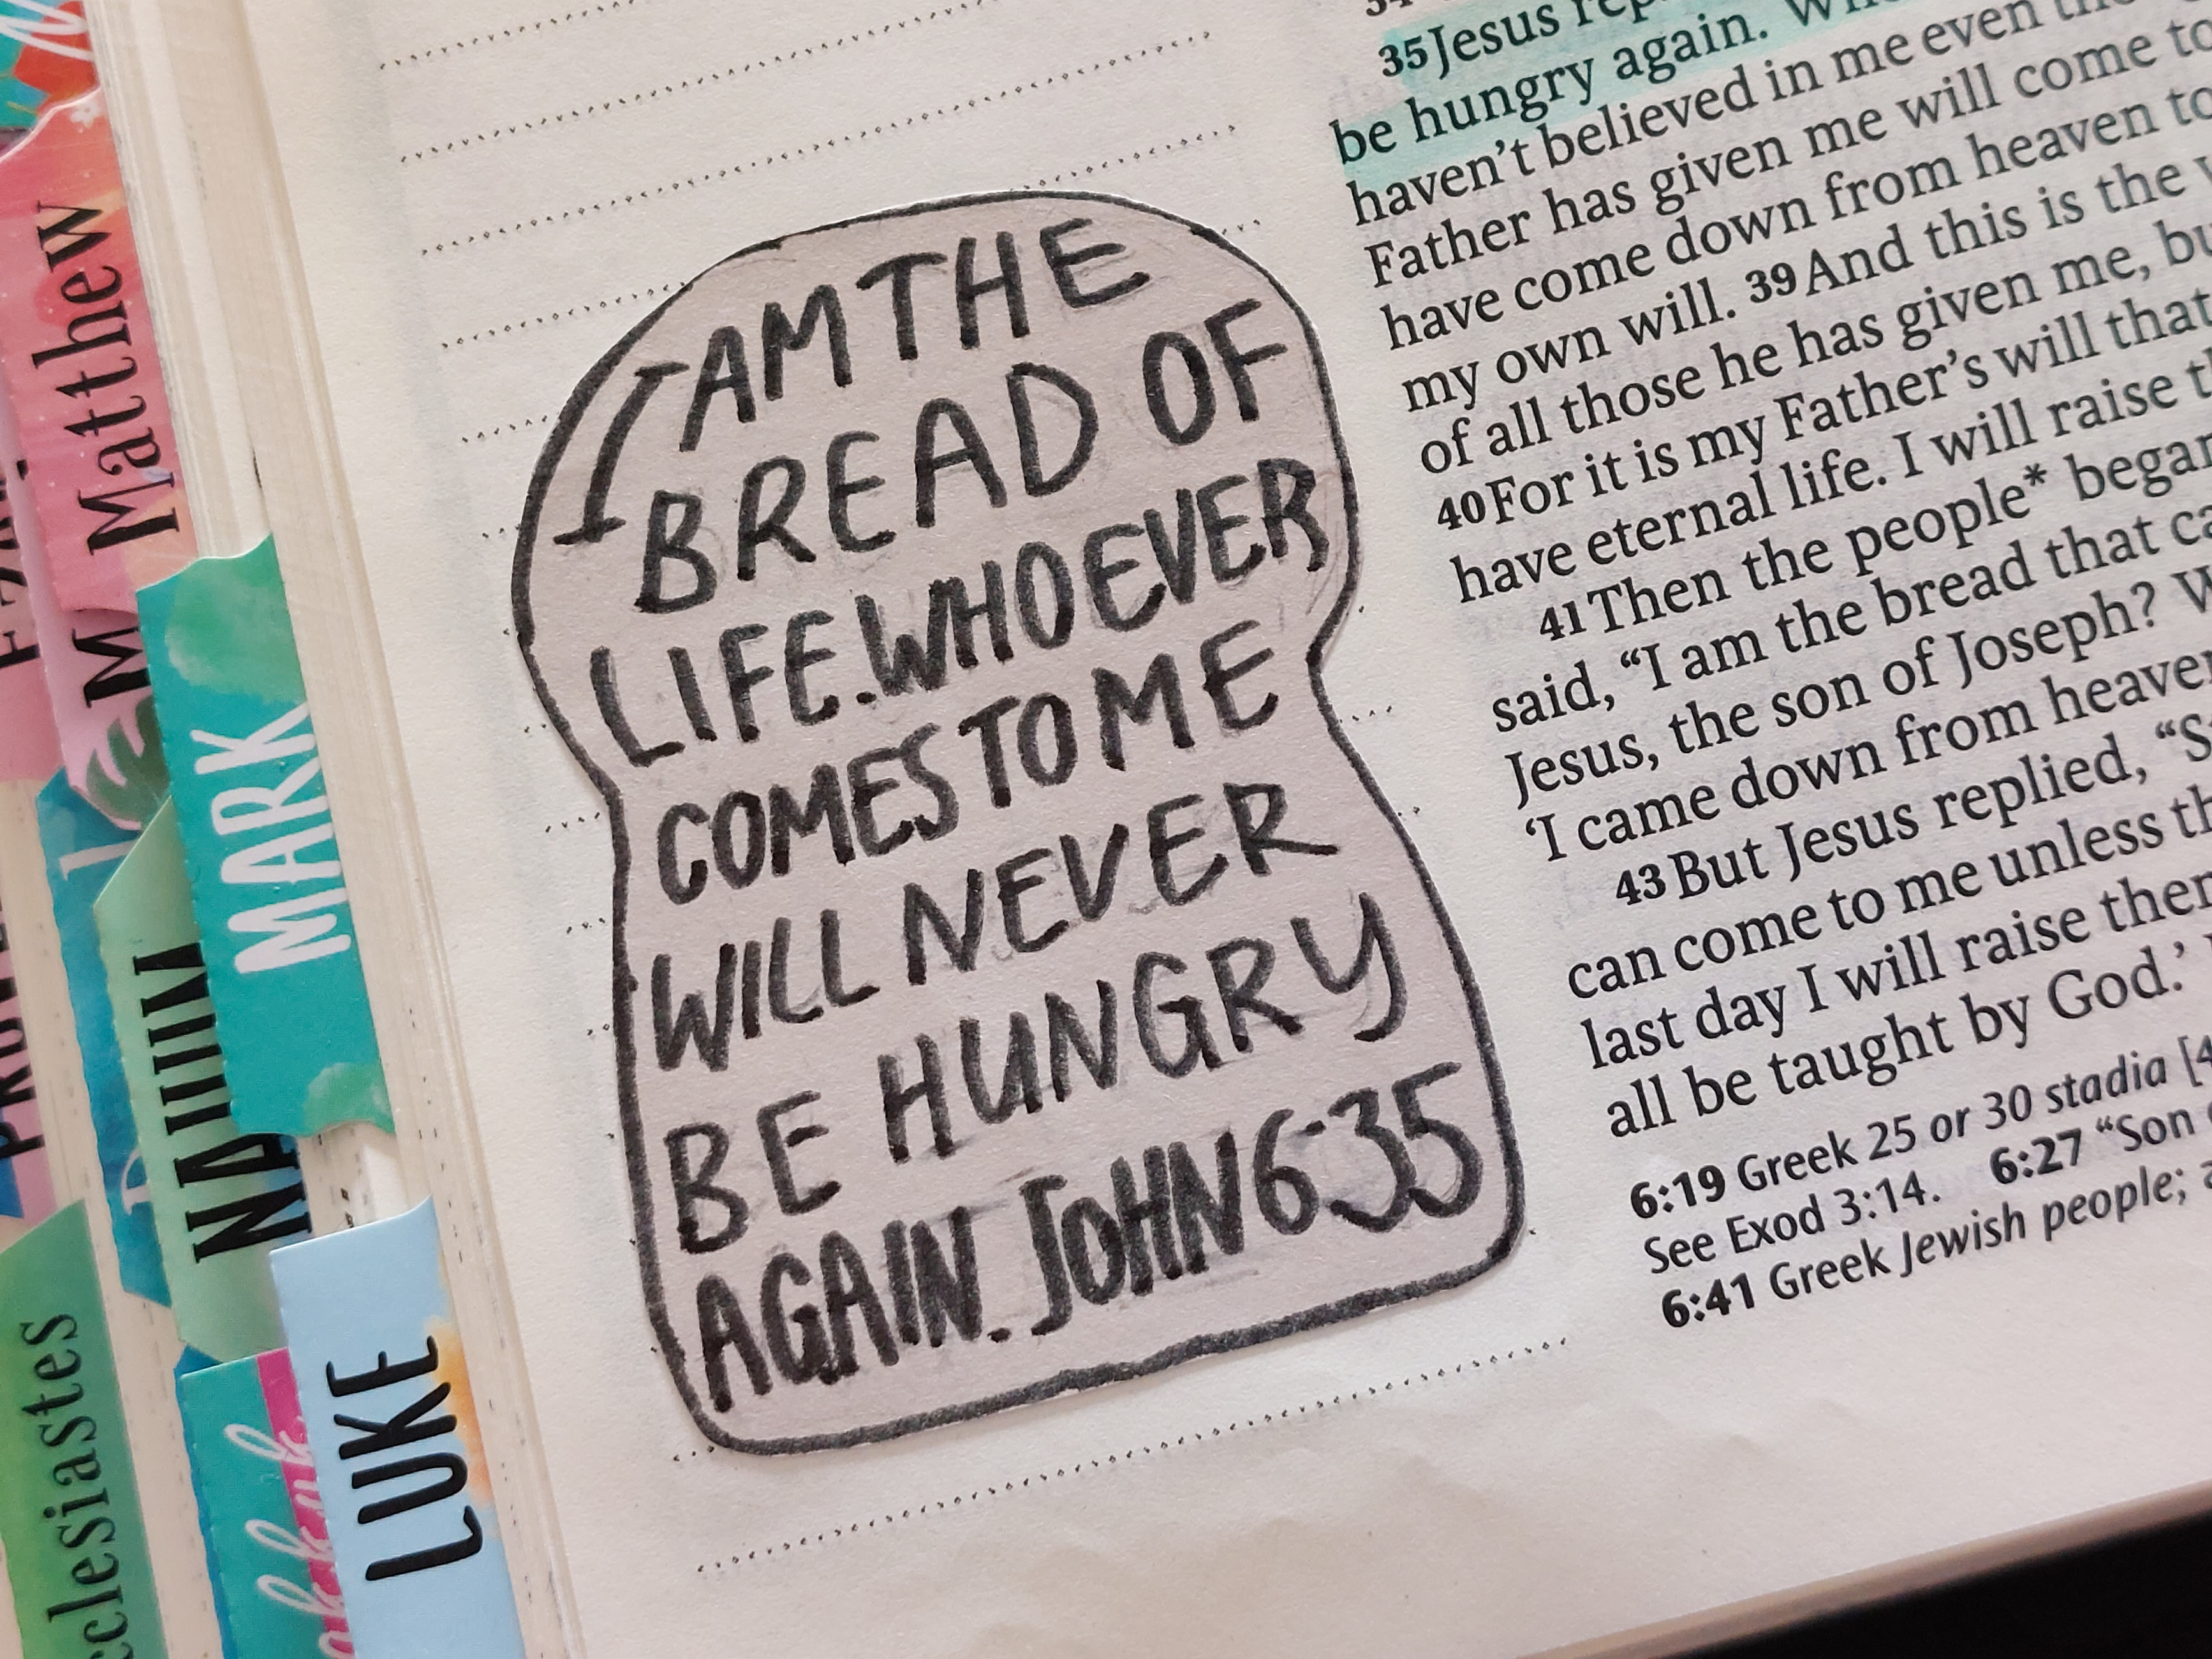 Matthew
MARK
NAHUM
LUKE
I AM THE
BREAD OF
LIFE. WHOEVER
COMES TO ME
WILL NEVER
BE HUNGRY
AGAIN. JOHN 6:35
35 Jesus
be hungry again.
haven't believed in me even
Father has given me will come to
have come down from heaven to
my own will. 39 And this is the
of all those he has given me,
40 For it is my Father's will that
have eternal life. I will raise
41 Then the people* began
said, “I am the bread that
Jesus, the son of Joseph?
‘I came down from
43 But Jesus replied,
can come to me unless
last day I will raise
all be taught by God.’
6:19 Greek 25 or 30 stadia
See Exod 3:14. 6:27 “Son
6:41 Greek Jewish people;